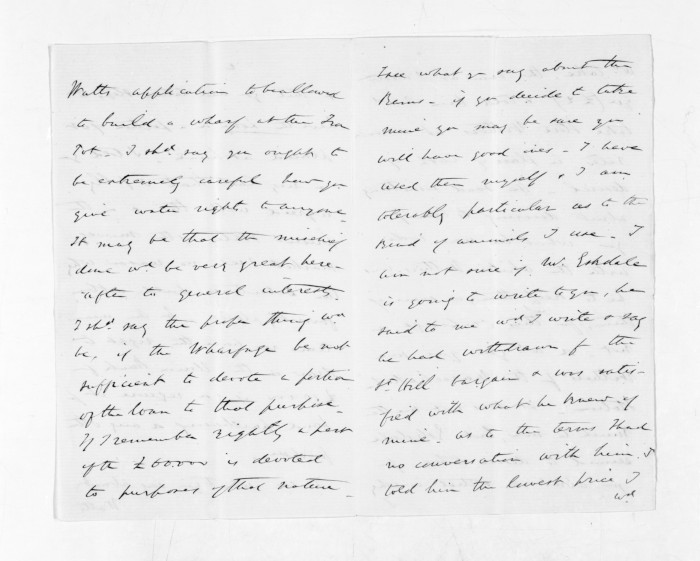 Watts application to be allowed
to build a wharf at the Iron
Pot. I shd. say you ought to
be extremely careful how you
give water right to anyone
It may be that the mischief
done wd. be very great here-
after to general interests.
I shd. say the proper thing wd.
be, if the Wharfage be not
sufficient to devote a portion
of the loan to that purpose.
If I remember rightly a part
of the £60000 is devoted
to purposes of that nature.
I see what you say about the
Rams - if you decide to take
mine you may be sure you
will have good ones - I have
used them myself & I am
tolerably particular as to the
Kind of animals I use - I
am not sure if Mr. Eskdale
is going to write to you, he
said to me wd. I write & say
he had withdrawn fm. the
St. Hill bargain & was satis-
fied with what he knew of
mine - as to the terms I had
no conversation with him. I
told him the lowest price I
wd.